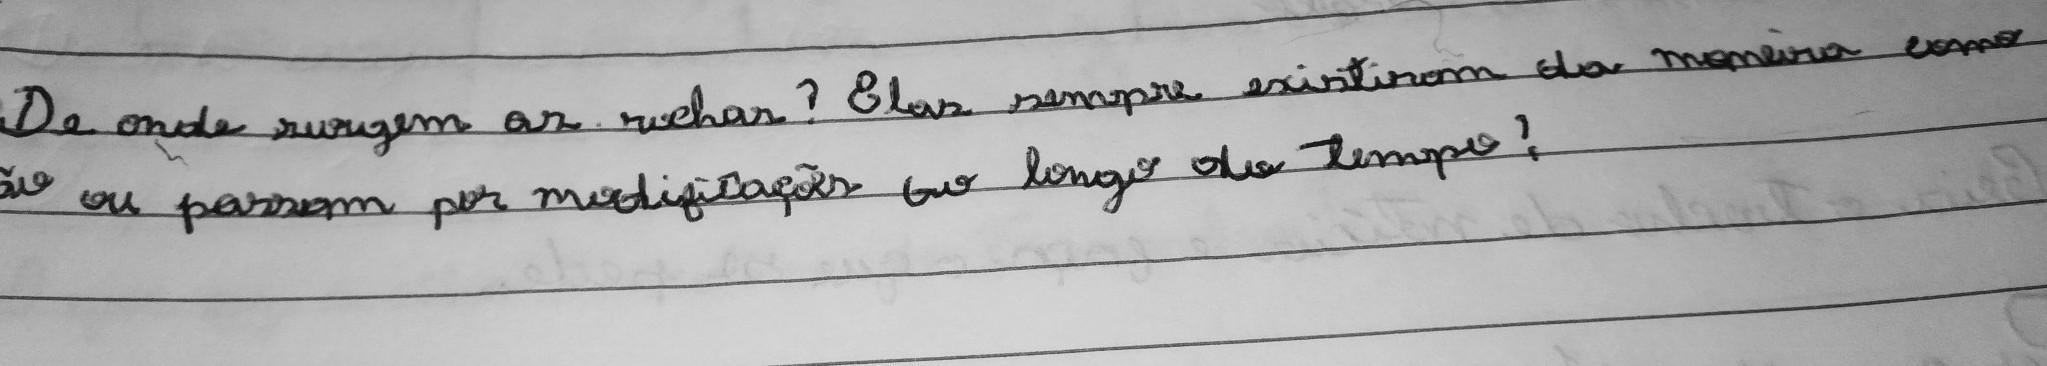 De onde surgem as rochas? Elas sempre existiram da maneira como
ão ou passam por modificações ao longo do tempo?